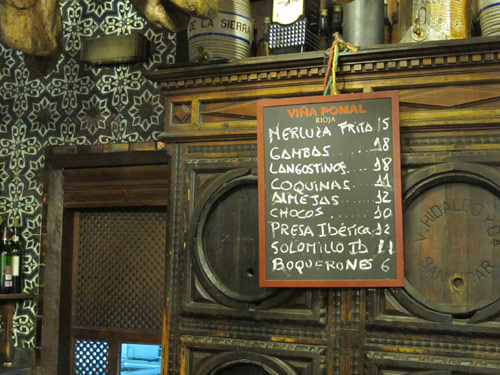 DE LA SIERRA
VIÑA POMAL
RIOJA
MERLUZA FRITA 15
GAMBAS ........ 18
LANGOSTINOS .. 18
COQUINAS ...... 11
ALMEJAS ....... 12
CHOCOS ....... 10
PRESA IBÉRICA .. 12
SOLOMILLO IB .. 11
BOQUERONES 6
V. HIDALGO Y Cª